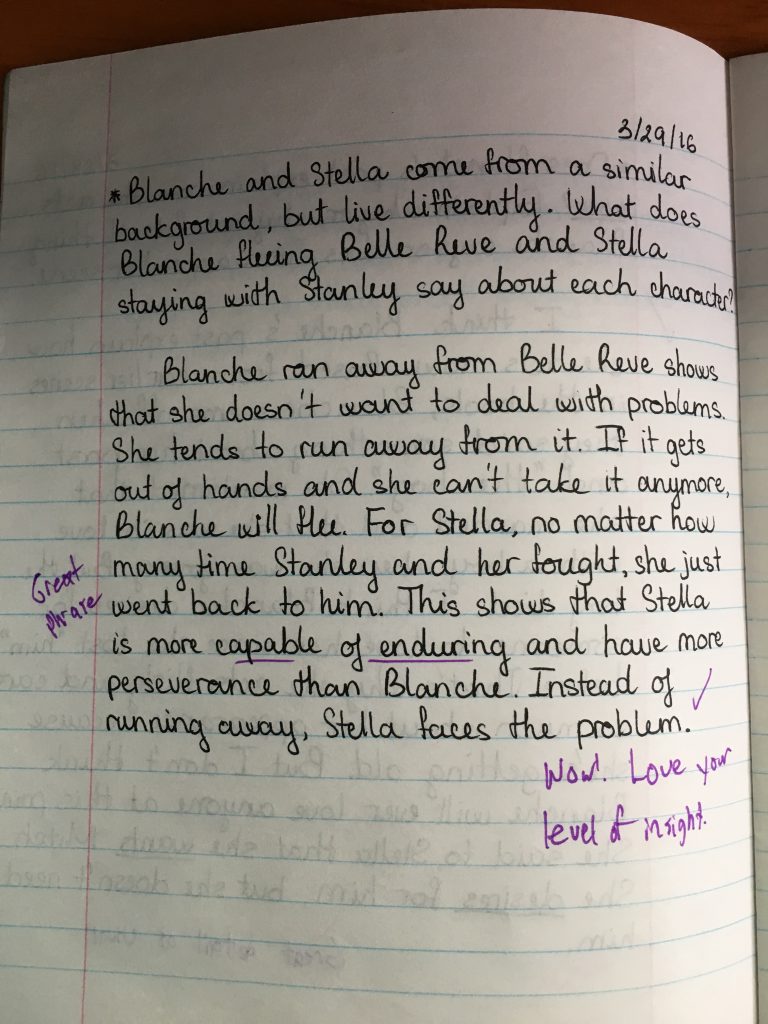 3/29/16
* Blanche and Stella come from a similar
background, but live differently. What does
Blanche fleeing Belle Reve and Stella
staying with Stanley say about each character?
Blanche ran away from Belle Reve shows
that she doesn't want to deal with problems.
She tends to run away from it. If it gets
out of hands and she can't take it anymore,
Blanche will flee. For Stella, no matter how
many time Stanley and her fought, she just
Great
phrase
went back to him. This shows that Stella
is more capable of enduring and have more
perseverance than Blanche. Instead of
running away, Stella faces the problem.
Wow! Love your
level of insight.